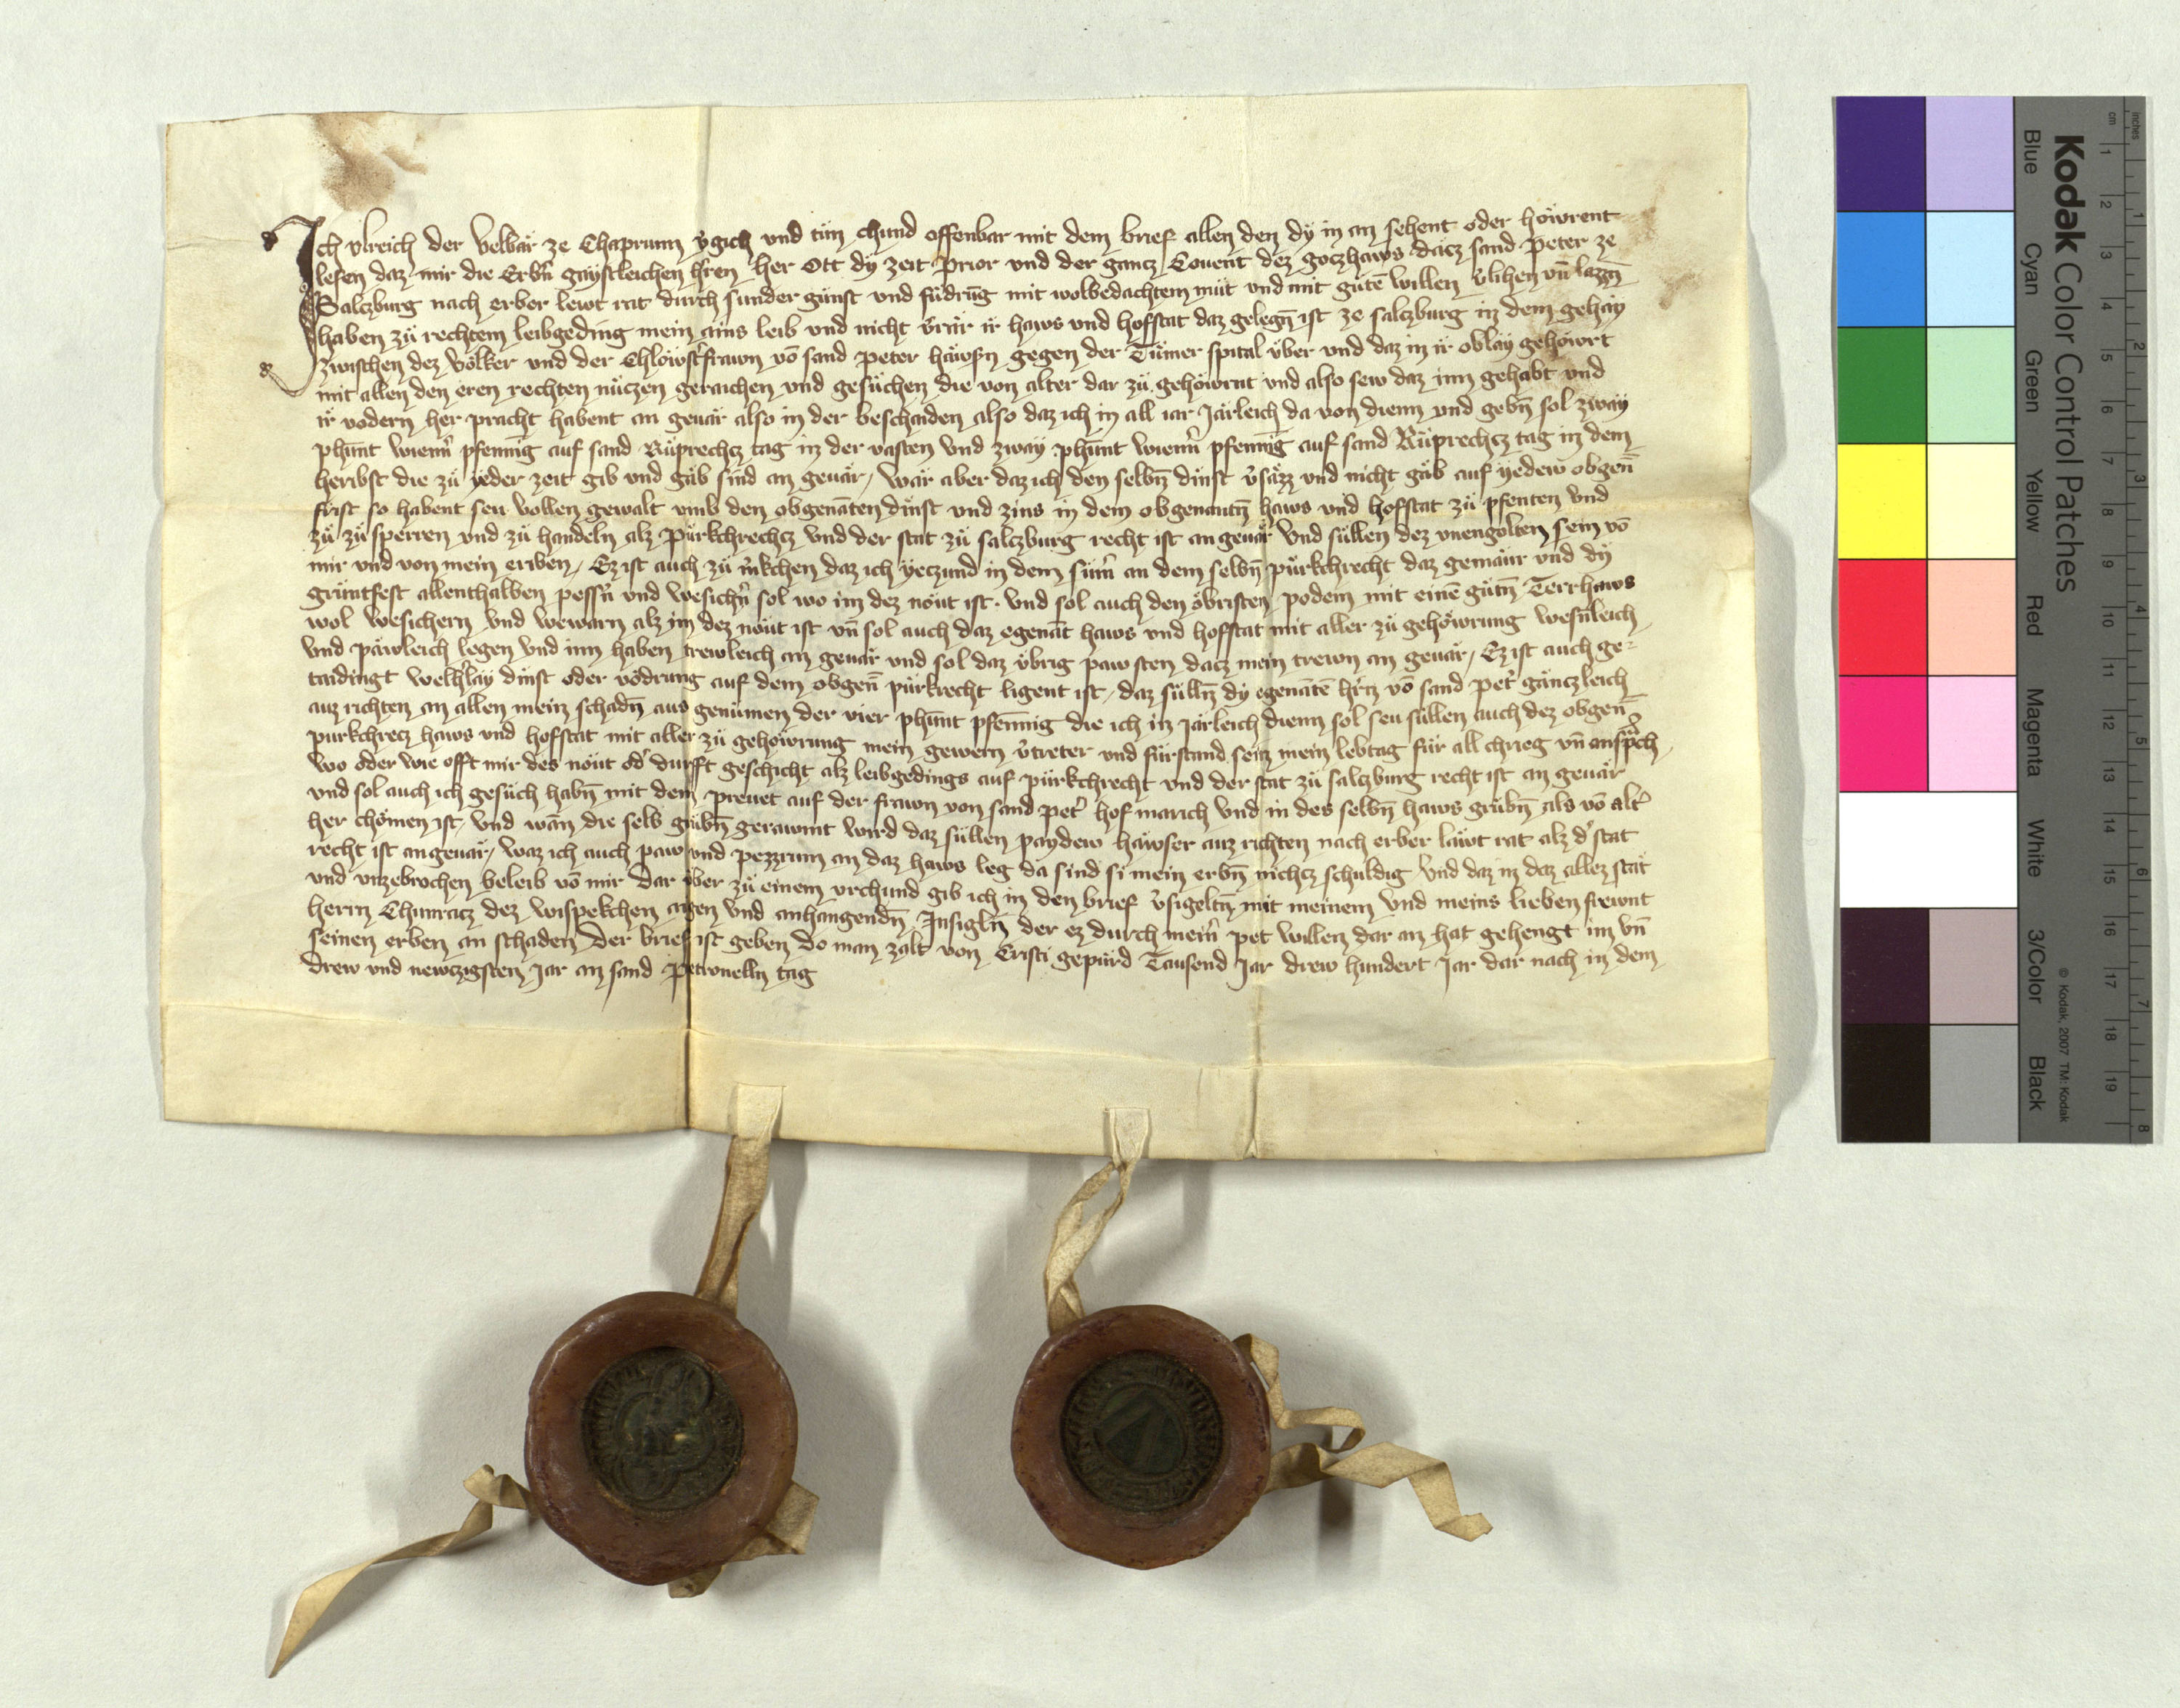 Ich vlreich der velbär ze Chaprunn v̓gich vnd tün chund offenbar mit dem brief allen den dy in an sehent oder höwrent
lesen daz mir die Erbn̄ gaystleichen hr̄en her Ott dy zeit Prior vnd der gancz Couent dez goczhaws dacz sand Peter ze
Salczburg nach erber lewt rat durch sunder gunst vnd füdrūg mit wolbedachtem müt vnd mit gütē willen v̓lihen vn̄ lazzn̄
haben zü rechtem leibgeding mein ains leib vnd nicht v̓rrär ir haws vnd hofstat daz gelegn̄ ist ze salczburg in dem gehay
zwischen dez völker vnd der Chlöwst̓frawn vō sand peter häwsn̄ gegen der Tümer spital über vnd daz in ir oblay gehöwrt
mit allen den eren rechten nüczen geraichen vnd gesüchen die von alter dar zü gehöwrnt vnd also sew daz inn gehabt vnd
ir vodern her pracht habent an geuär also in der beschaiden also daz ich in all iar Järleich da von dienn vnd gebn̄ sol zway
phunt wienn̓ pfennīg auf sand Rüprechcz tag in der vasten vnd zway phunt wienn̓ pfennīg auf sand Rüprechcz tag in dem
heribst die zü yeder zeit gib vnd gäb sind an geuär / wär aber daz ich den selbn̄ dinst v̓säzz vnd nicht gäb auf yedew obgen̄
frist so habent seu vollen gewalt vmb den obgenāten dinst vnd zins in dem obgenantn̄ haws vnd hofstat zü pfenten vnd
zü zü sperren vnd zü handeln alz pürkchrechcz vnd der stat zü salczburg recht ist an geuär vnd süllen dez vnengolten sein vō
mir vnd von mein eriben / Ez ist auch zü m̓kchen daz ich yeczund in dem süm̓ an dem selbn̄ pürkchrecht daz gemäur vnd dy
gruntfest allenthalben pessn̓ vnd wesichn̓ sol wo im dez nöut ist. vnd sol auch den öbristen podem mit einē gütn̄ Terrhaws
wol wesichern vnd wewarn alz im dez nöut ist vn̄ sol auch daz egenāt haws vnd hofstat mit aller zü gehöwrung wesn̄leich
vnd päwleich legen vnd inn haben trewleich an geuär vnd sol daz übrig paw sten dacz mein trewn an geuär / Ez ist auch ge-
taidingt welh̓lay dinst oder vödrung auf dem obgen̄ pürkrecht ligent ist / daz sülln̄ dy egenātē hr̄n vō sand pet̓ gänczleich
auz richten an allen mein schadn̄ aus genümen der vier phunt pfennig die ich in Järleich dienn sol seu süllen auch dez obgen̄
purkchrecz haws vnd hofstat mit aller zü gehöwrung mein gewern v̓treter vnd fürstand sein mein lebtag für all chrieg vn̄ anspr̄ch
wo oder wie offt mir des nöut od̓ durfft geschicht alz leibgedings auf pürkchrecht vnd der stat zü salczburg recht ist an geuär
vnd sol auch ich gesüch habn̄ mit dem preuet auf der frawn von sand pet̓ hofmarich vnd in des selbn̄ haws grübn̄ als vō alt̓
her chömen ist / vnd wān die selb grübn̄ gerawmt wird daz süllen paydew häwser auz richten nach erber läwt rat alz d̓ stat
recht ist an geuär / waz ich auch paw vnd pezzrum an daz haws leg da sind si mein erbn̄ nichcz schuldig vnd daz in daz allez stät
vnd vnzebrochen beleib vō mir Dar über zü einem vrchund gib ich in den brief v̓sigeltn̄ mit meinem vnd meins lieben frewnt
herrn Chunracz dez wispekchen aigen vnd anhangendn̄ Insigln̄ der ez durch mein̓ pet willen dar an hat gehengt im vn̄
seinen erben an schaden Der brief ist geben do man zalt von Cristi gepürd Tausend Jar drew hundert Jar dar nach in dem
drew vnd newczigsten Jar an sand petronelln tag
Kodak Color Control Patches
© Kodak, 2007 TM: Kodak
Blue Cyan Green Yellow Red Magenta White 3/Color Black
cm 1 2 3 4 5 6 7 8 9 10 11 12 13 14 15 16 17 18 19
inches 1 2 3 4 5 6 7 8